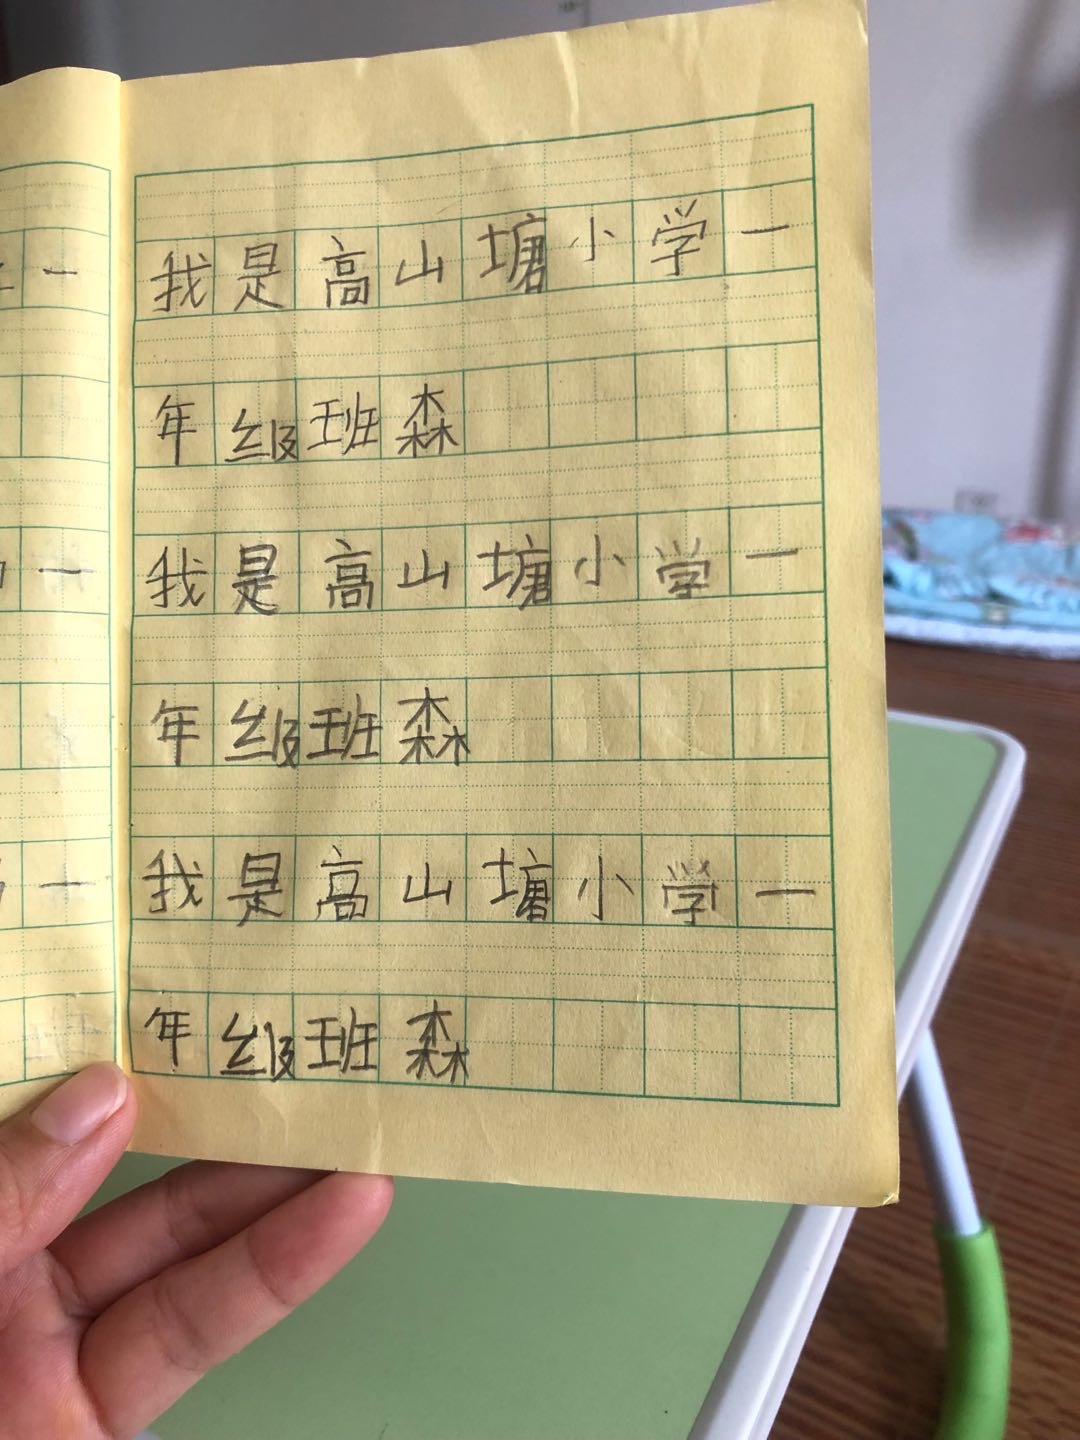 一
我是高山塘小学一
年级班森
一
我是高山塘小学一
年级班森
一
我是高山塘小学一
年级班森